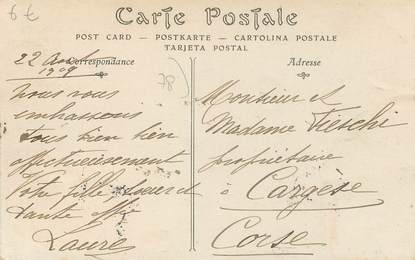 6 €
Carte Postale
POST CARD — POSTKARTE — CARTOLINA POSTALE
TARJETA POSTAL
Correspondance
22 Août
1909
78)
Nous vous
embrassons
tous bien bien
affectueusement
Votre fille, soeur et
tante affte
Laure
Adresse
Monsieur et
Madame Fieschi
propriétaire
à Cargèse
Corse